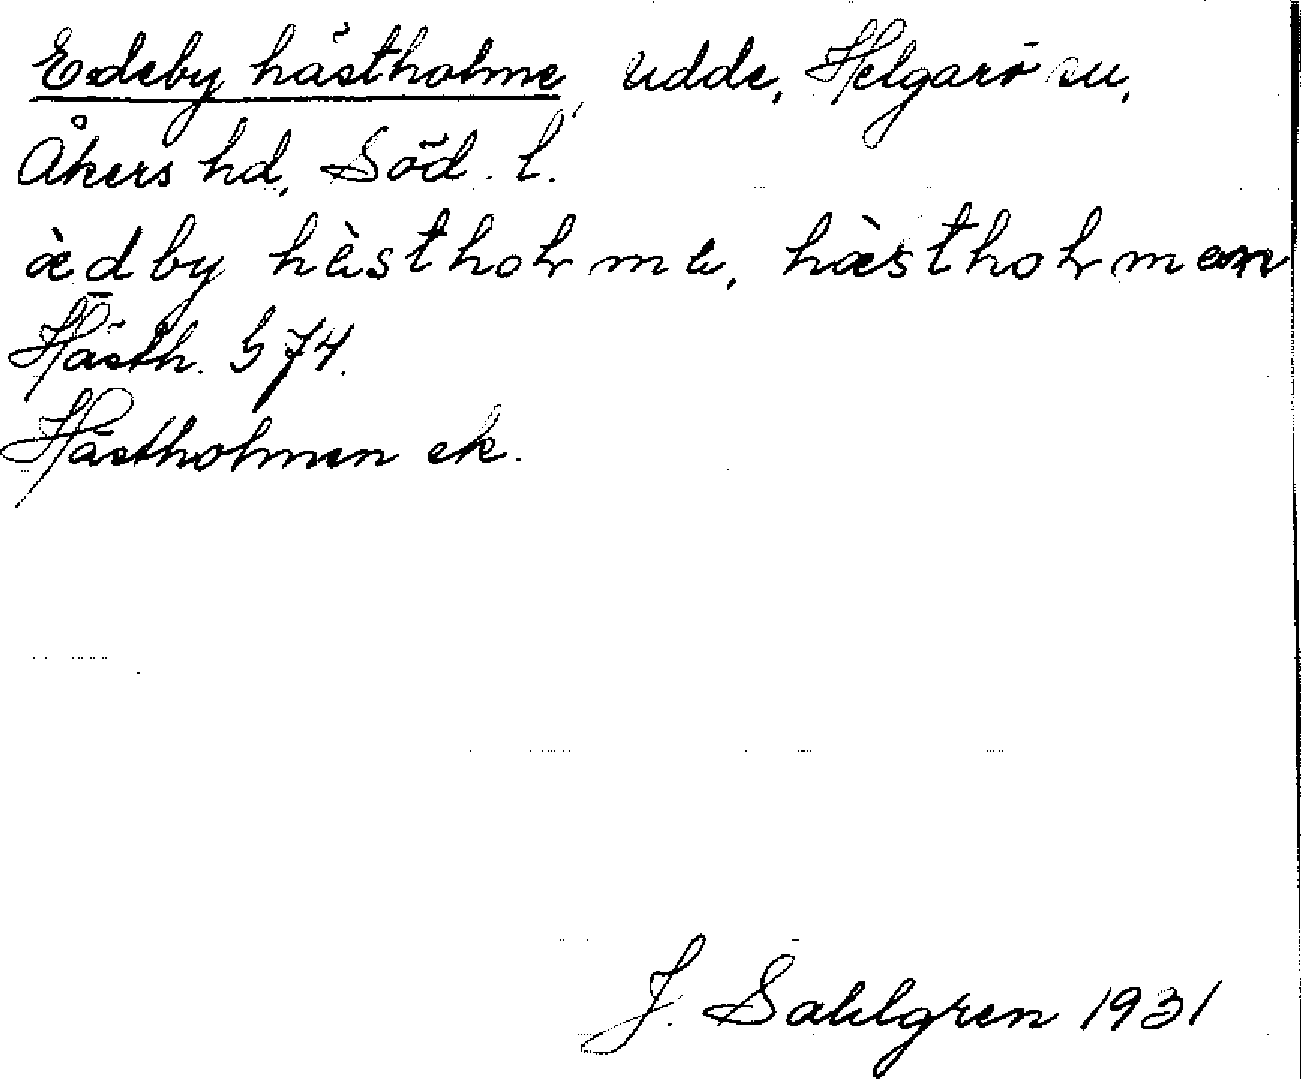 Edeby hästholme, udde, Helgarö sn,
Åkers hd, Söd. l.
æ̀dby hæ̀sthoɫmɛ, hæ̀sthoɫmɛn
Hästh. G 74.
Hästholmen ek.
J. Sahlgren 1931